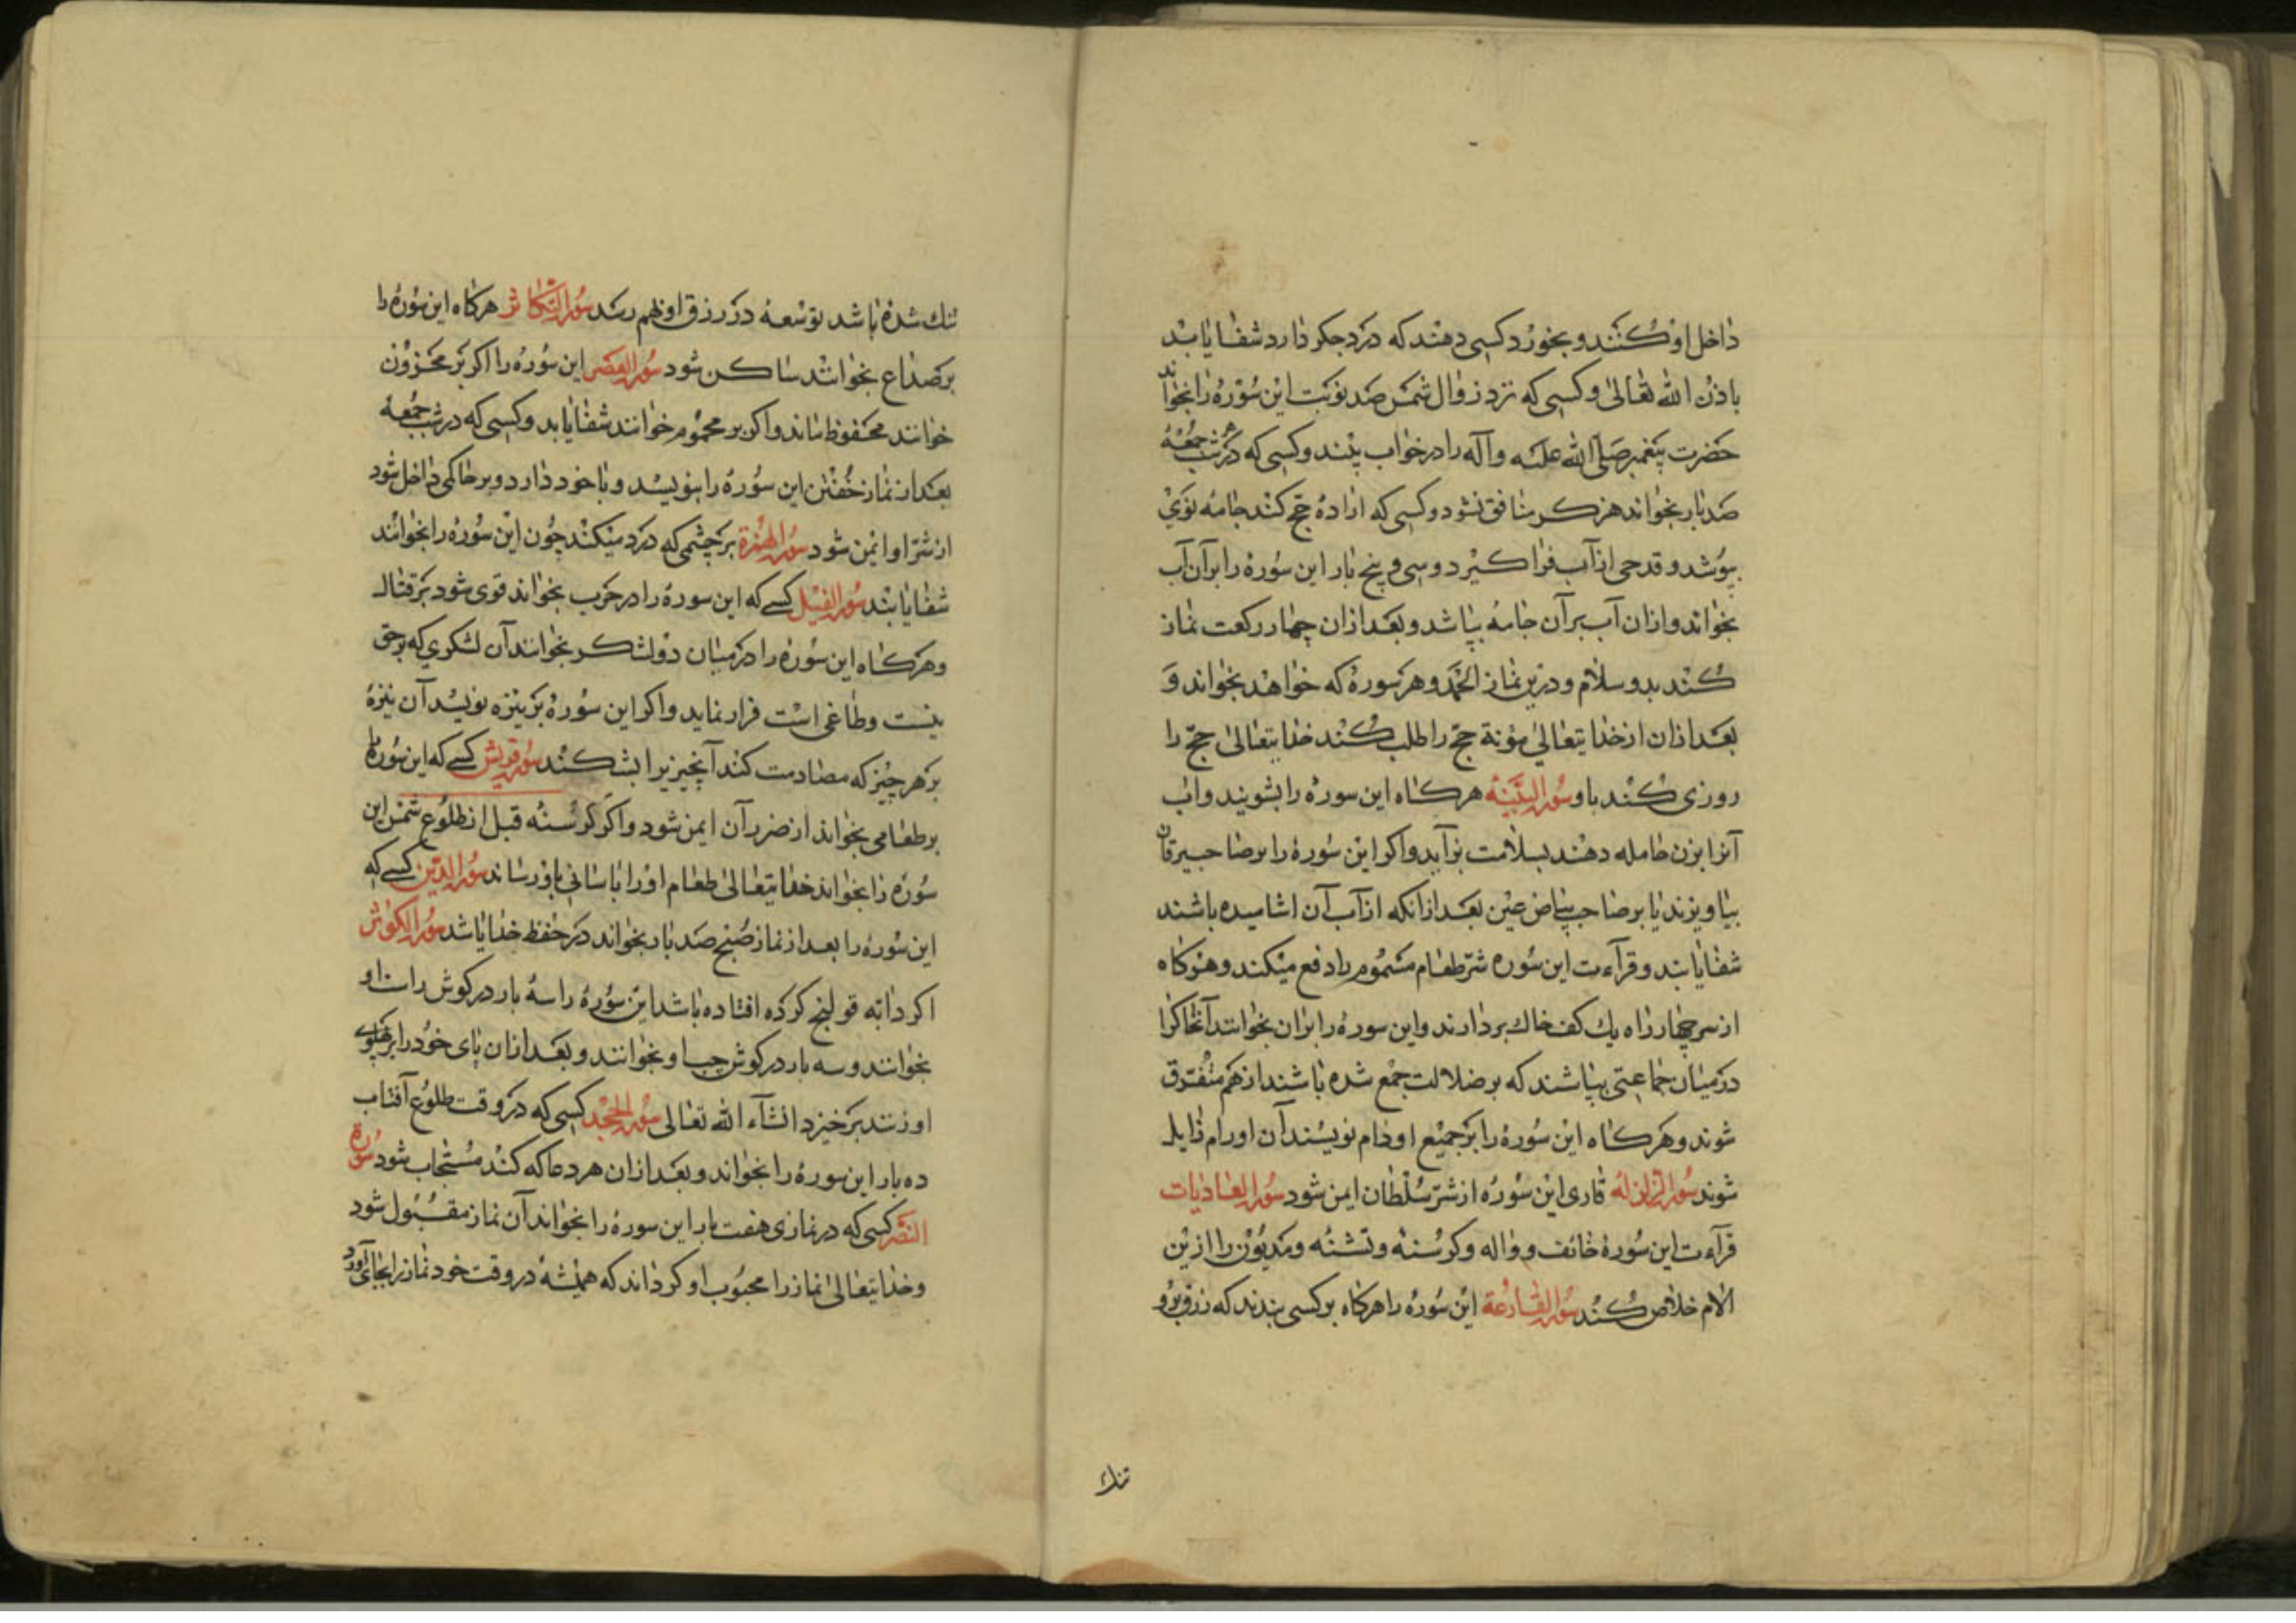 داخل او کنند و بخورد کسی دهند که درد جکر دارد شفا یابد
باذن الله تعالی و کسی که نزد زوال شمس صد نوبت این سوره را بخواند
حضرت پیغمبر صلی الله علیه و آله را در خواب بیند و کسی که در شب جمعه
صد بار بخواند هرکز منافق نشود و کسی که اراده حج کند جامه نوی
بپوشد و قدحی از آب فرا کیرد و سی و پنج بار این سوره را بر آن آب
بخواند و ازان آب بر آن جامه بپاشد و بعد ازان چهار رکعت نماز
کند بدو سلام و درین نماز الحمد و هر سوره که خواهد بخواند و
بعد ازان از خدایتعالی مؤنة حج را طلب کند خدایتعالی حج را
روزی کند باو سورة البینه هرکاه این سوره را بشویند و آب
آنرا بزن حامله دهند بسلامت بزاید و اکر این سوره را بر صاحب یرقان
بیاویزند یا بر صاحب بیاض عین بعد ازانکه از آب آن اشامیده باشند
شفا یابند و قرآءت این سوره شر طعام مسموم را دفع میکند و هرکاه
از سر چهار راه یک کف خاک بردارند و این سوره را بران بخوانند آنخاک را
در میان جماعتی بپاشند که بر ضلالت جمع شده باشند از هم متفرق
شوند و هرکاه این سوره را بر جمیع اورام نویسند آن اورام زایل
شوند سورة الزلزله قاری این سوره از شر سلطان ایمن شود سورة العادیات
قرآءت این سوره خائف و واله و کرسنه و تشنه و مدیون را ازین
الام خلاص کند سورة القارعة این سوره را هرکاه بر کسی بندند که رزق برو
تنک
تنک شده باشد توسعه در رزق او بهم رسد سورة التکاثر هرکاه این سوره را
بر صداع بخوانند ساکن شود سورة العصر این سوره را اکر بر مخزون
خوانند محفوظ ماند و اکر بر محموم خوانند شفا یابد و کسی که در شب جمعه
بعد از نماز خفتن این سوره را بنویسد و با خود دارد و بر حاکمی داخل شود
از شر او ایمن شود سورة الهمزة بر چشمی که درد میکند چون این سوره را بخوانند
شفا یابد سورة الفیل کسی که این سوره را در حرب بخواند قوی شود بر قتال
و هرکاه این سوره را در میان دو لشکر بخوانند آن لشکری که بر حق
نیست و طاغی است فرار نماید و اکر این سوره بر نیزه نویسد آن نیزه
بر هر چیز که مصادمت کند آنچیز را بشکند سورة قریش کسی که این سوره را
بر طعامی بخواند از ضرر آن ایمن شود و اکر کرسنه قبل از طلوع شمس این
سوره را بخواند خدایتعالی طعام او را باسانی باو رساند سورة الدین کسی که
این سوره را بعد از نماز صبح صد بار بخواند در حفظ خدا باشد سورة الکوثر
اکر دابه قولنج کرده افتاده باشد این سوره را سه بار در کوش راست او
بخوانند و سه بار در کوش چپ او بخوانند و بعد ازان پای خود را بر پهلوی
او زنند برخیزد انشآء الله تعالی سورة الجحد کسی که در وقت طلوع آفتاب
ده بار این سوره را بخواند و بعد ازان هر دعا که کند مستجاب شود سورة
النصر کسی که در نمازی هفت بار این سوره را بخواند آن نماز مقبول شود
و خدایتعالی نماز را محبوب او کرداند که همیشه در وقت خود نماز را بجای آورد